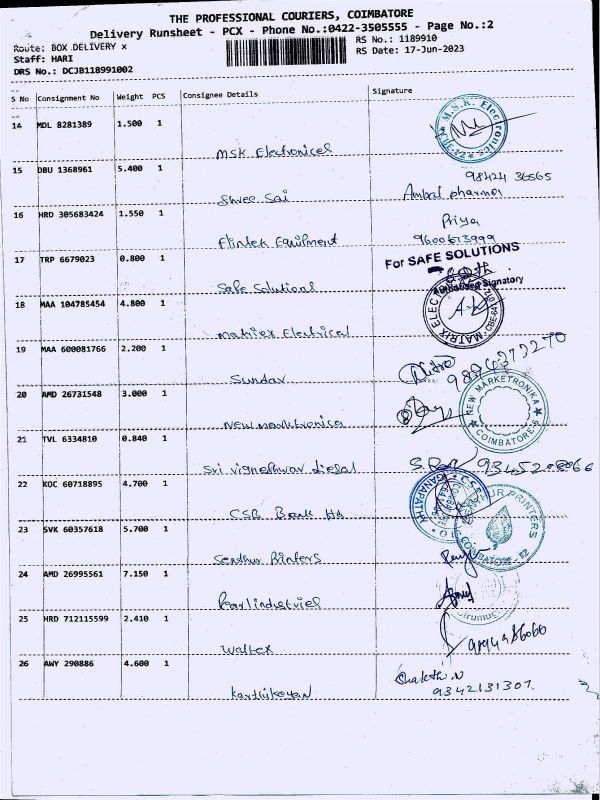 THE PROFESSIONAL COURIERS, COIMBATORE
Delivery Runsheet - PCX - Phone No.:0422-3505555 - Page No.:2
Route: BOX DELIVERY x
RS No.: 1189910
Staff: HARI
RS Date: 17-Jun-2023
DRS No.: DCJB118991002
S No Consignment No Weight PCS Consignee Details Signature
14 MDL 8281389 1.500 1
M.S.K. Electronics
MSK Electronicel
15 DBU 1368961 5.400 1
98424 36565
Shree Sai Ambal pharma
16 HRD 305683424 1.550 1
Priya
Flintek Equipment 9600673999
17 TRP 6679023 0.800 1
For SAFE SOLUTIONS
Safe Solutions
Authorised Signatory
18 MAA 104785454 4.800 1
MATRIX ELEC
Matriex Electrical
19 MAA 600081766 2.200 1
9894373270
Sundar
20 AMD 26731548 3.000 1
NEW MARKETRONIKA
COIMBATORE-6
New Marktronica
21 TVL 6334810 0.840 1
Sri Vigneshwar diesal 9345208066
22 KOC 60718895 4.700 1
GANAPATHY
CSB Bank ltd
23 SVK 60357618 5.700 1
UR PRINTERS
COIMBATORE - 12
Senthur Printers
24 AMD 26995561 7.150 1
Pearl industriel
25 HRD 712115599 2.410 1
Waltex
26 AWY 290886 4.600 1
Shakthi.N
9342131307
Karthikeyan